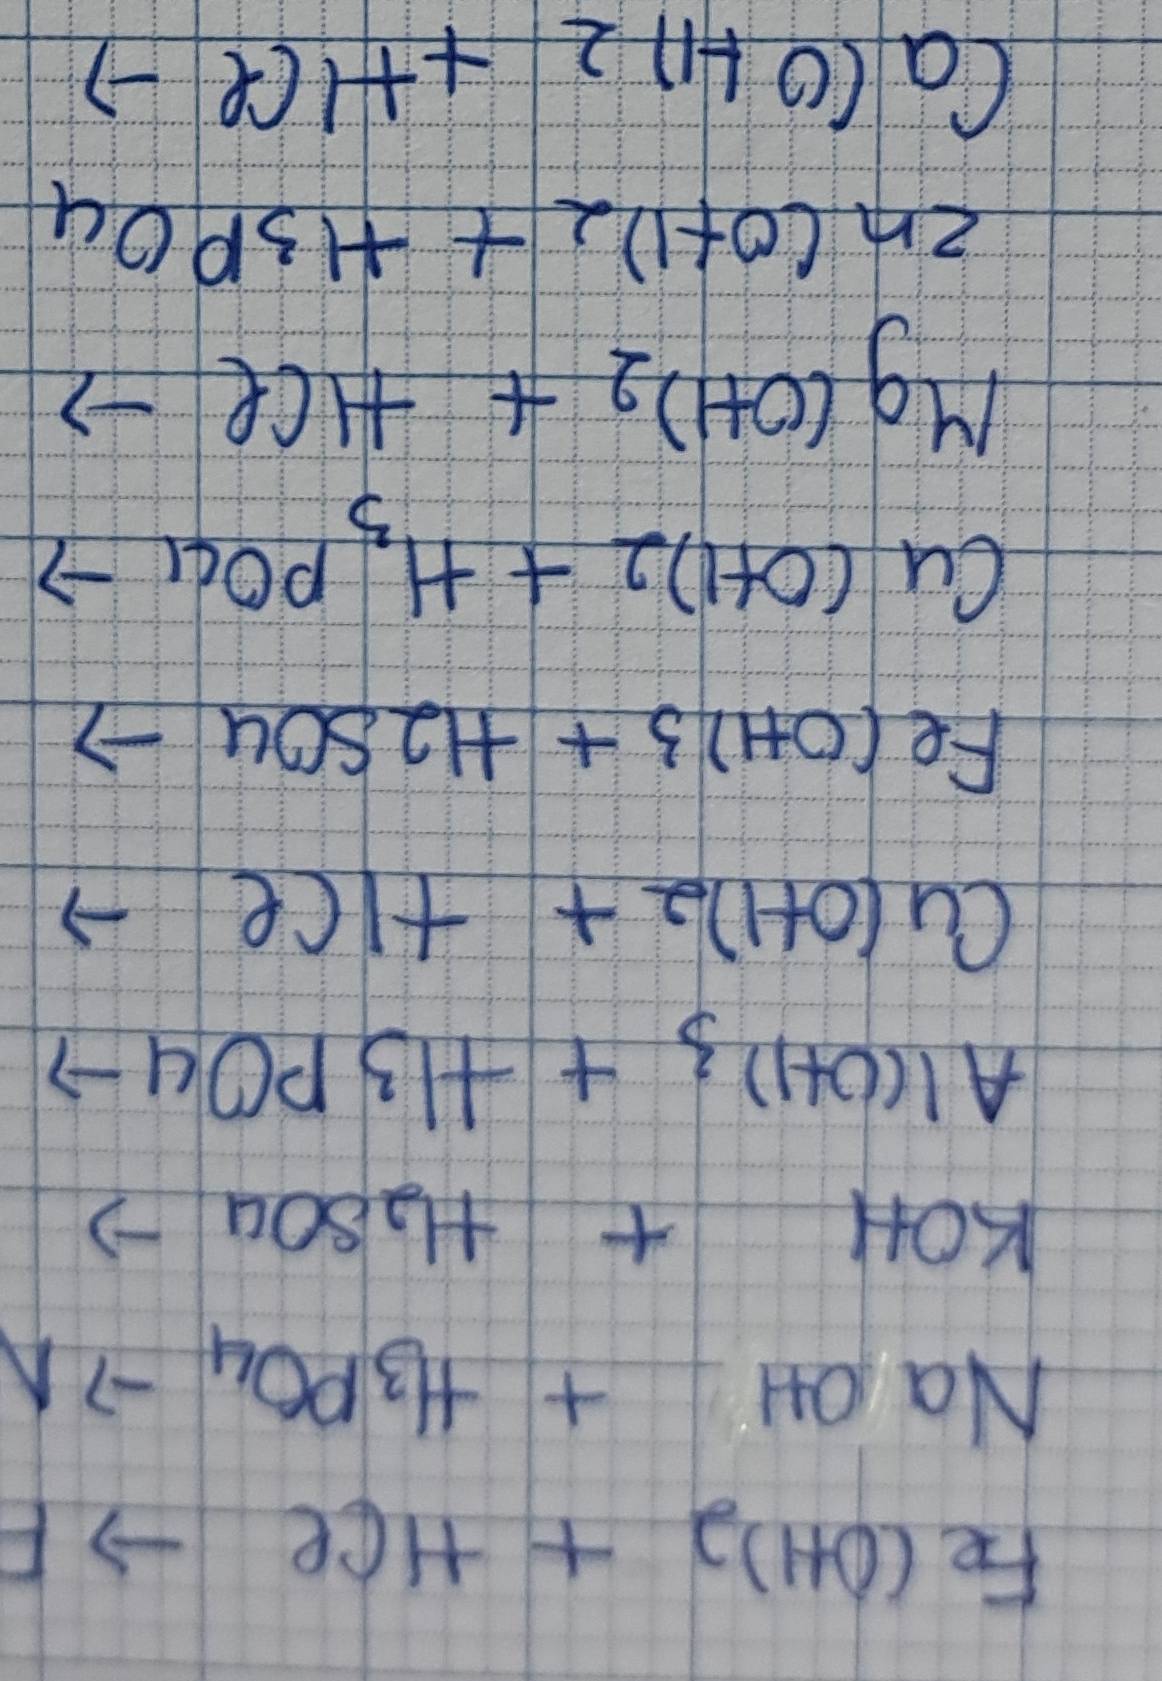 Fe(OH)2 + HCl →
NaOH + H3PO4 →
KOH + H2SO4 →
Al(OH)3 + H3PO4 →
Cu(OH)2 + HCl →
Fe(OH)3 + H2SO4 →
Cu(OH)2 + H3PO4 →
Mg(OH)2 + HCl →
Zn(OH)2 + H3PO4
Ca(OH)2 + HCl →